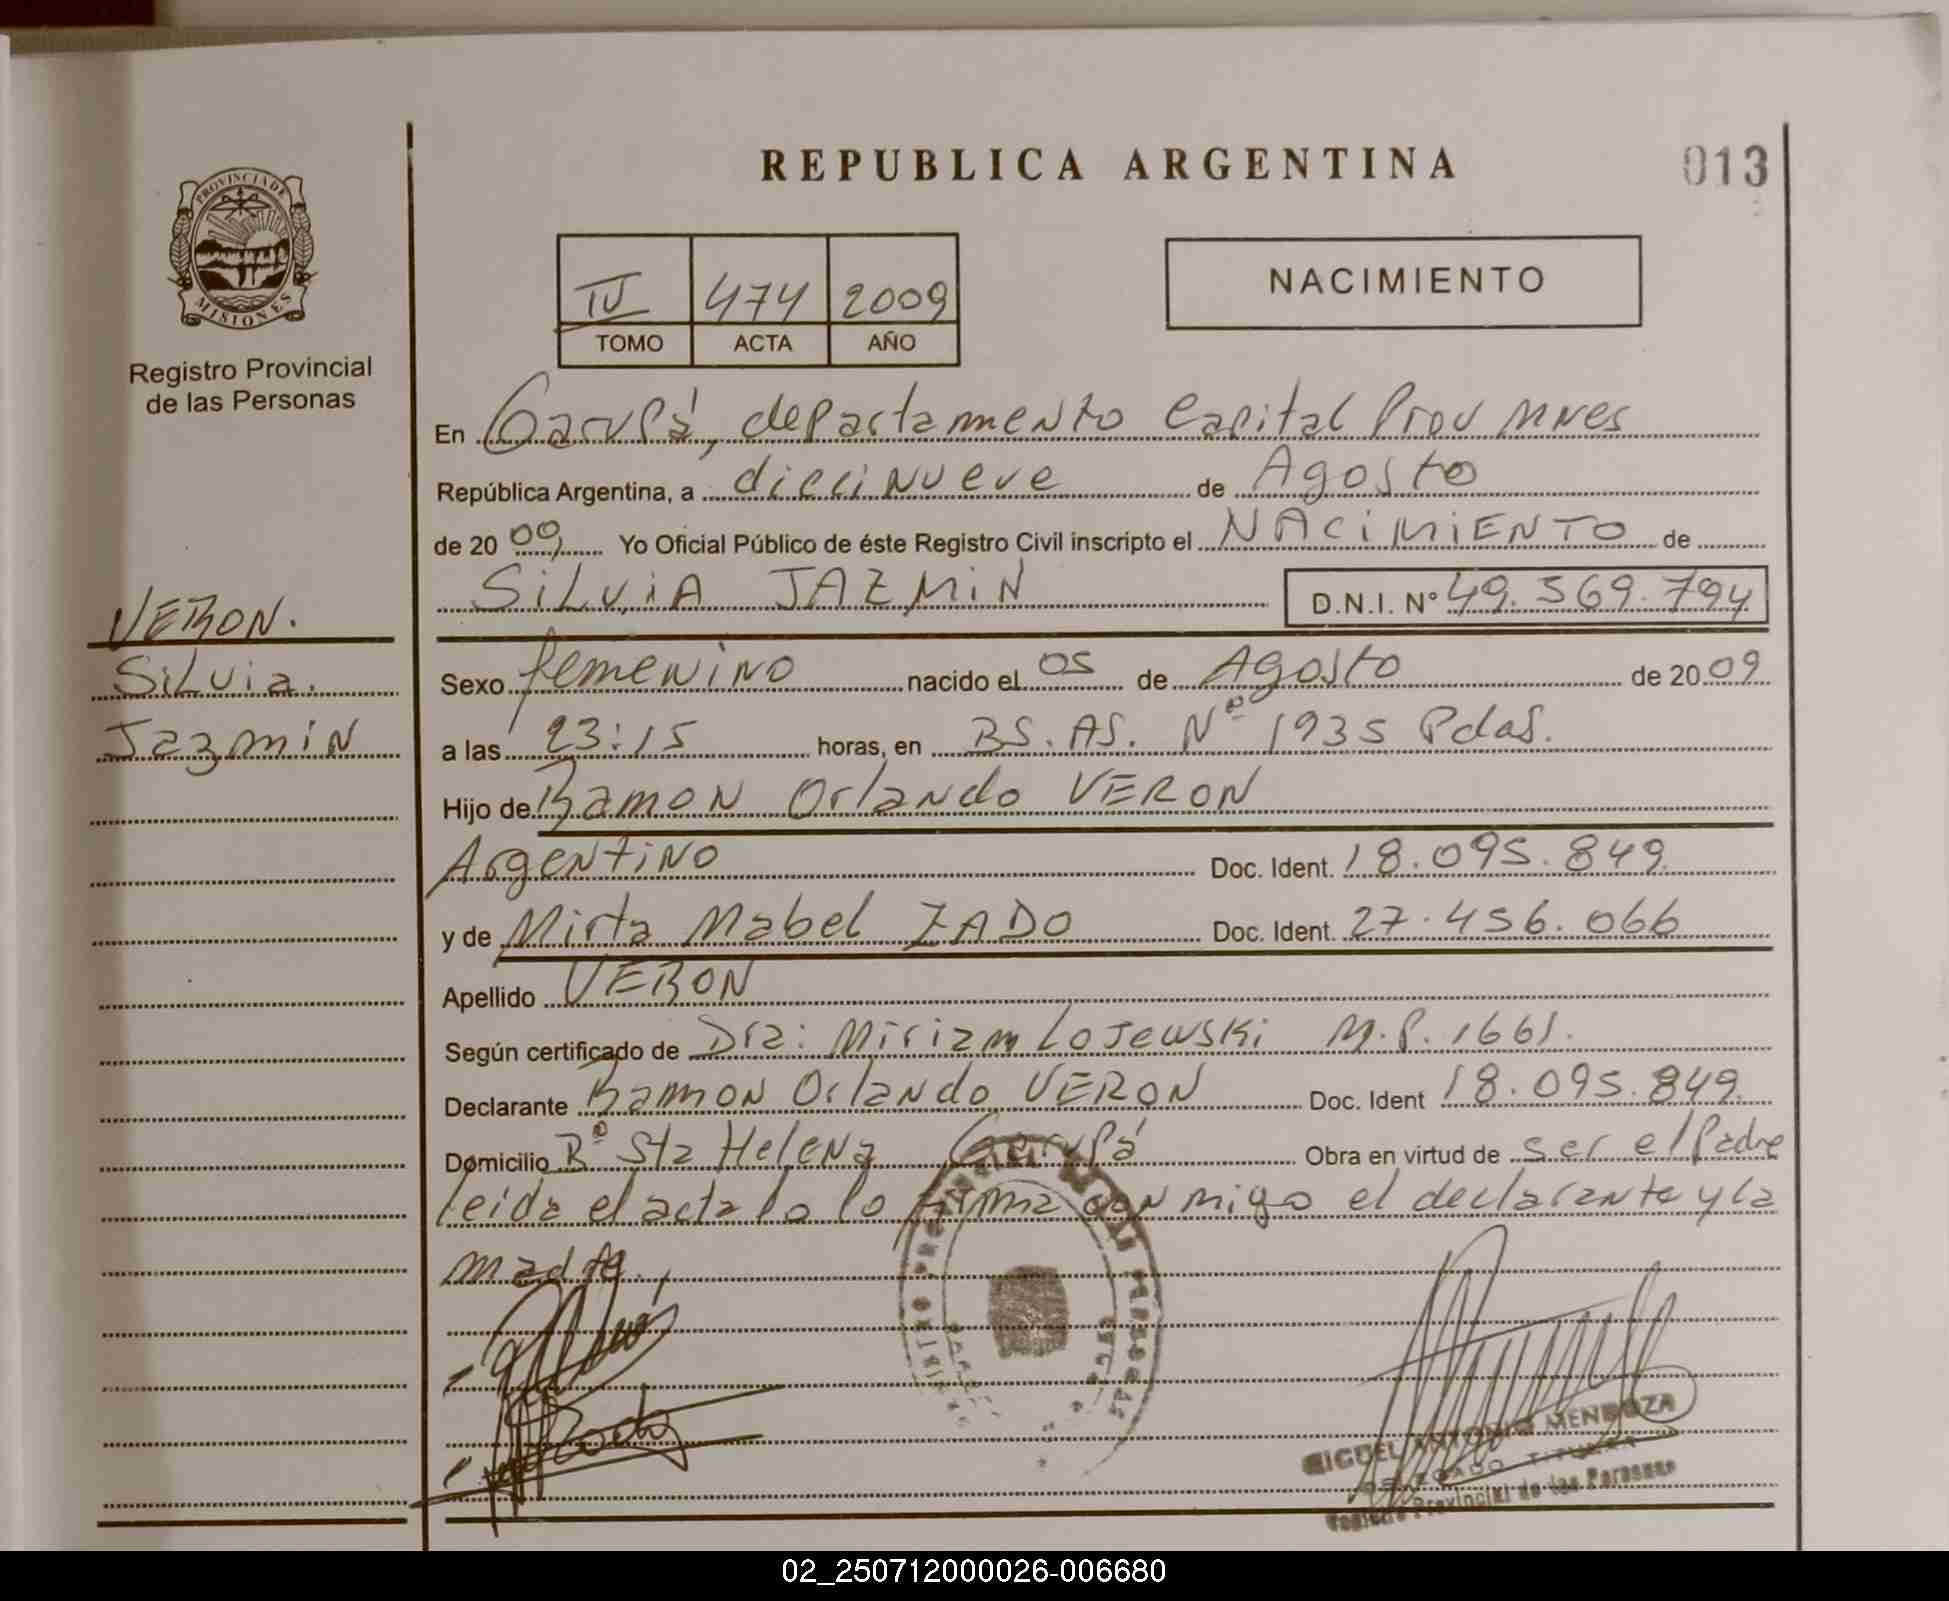 REPUBLICA ARGENTINA
013
PROVINCIA DE
MISIONES
Registro Provincial
de las Personas
IV 474 2009
TOMO ACTA AÑO
NACIMIENTO
En Garupá, departamento Capital Prov Mnes
República Argentina, a diecinueve de Agosto
de 2009 Yo Oficial Público de éste Registro Civil inscripto el NACIMIENTO de
SILVIA JAZMIN D.N.I. Nº 49.569.794
VERON.
Silvia.
Jazmin
Sexo femenino nacido el 05 de Agosto de 2009
a las 23:15 horas, en BS. AS. Nº 1935 Pdas.
Hijo de Ramon Orlando VERON
Argentino Doc. Ident. 18.095.849
y de Mirta Mabel ZADO Doc. Ident. 27.456.066
Apellido VERON
Según certificado de Dra: Miriam Lojewski M.P. 1661.
Declarante Ramon Orlando VERON Doc. Ident 18.095.849
Domicilio Bº Sta Helena Garupá Obra en virtud de ser el Padre
leida el acta la lo firma con migo el declarante y la
madre.,
MIGUEL ANTONIO MENDOZA
DELEGADO TITULAR
Registro Provincial de las Personas
02_250712000026-006680